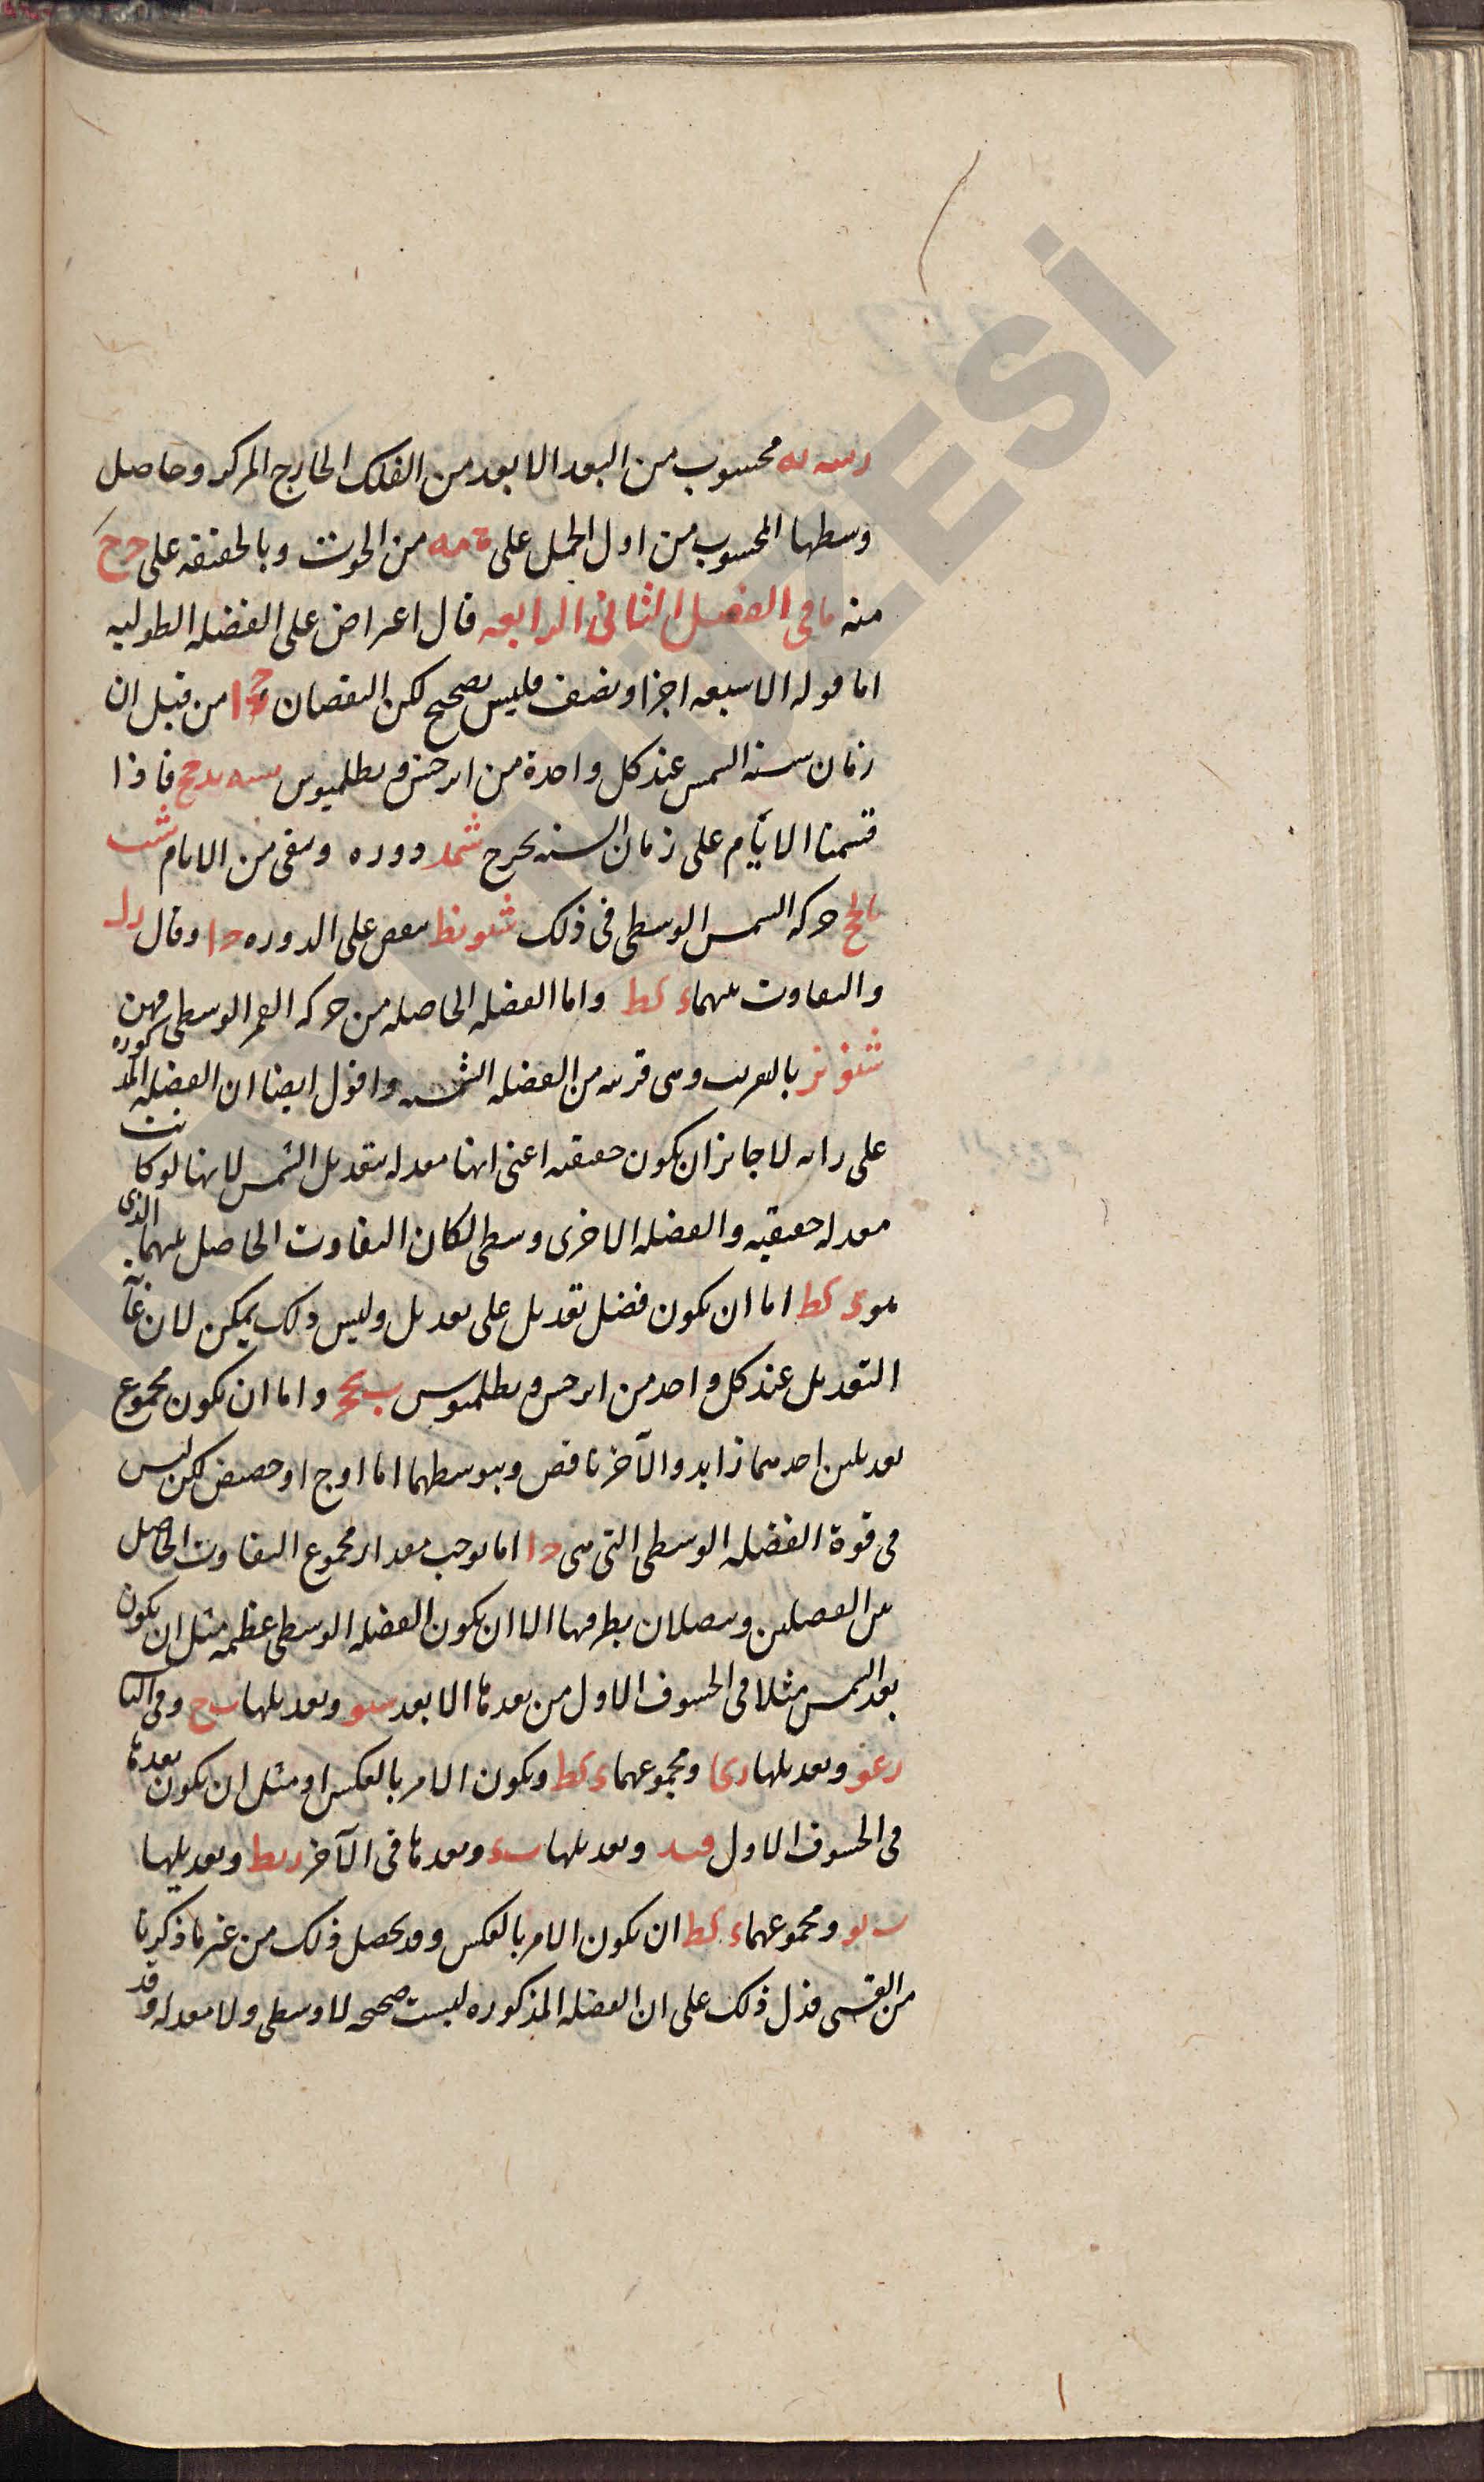 رسه له محسوب من البعد الابعد من الفلك الخارج المركز وحاصل
وسطها المحسوب من اول الحمل على مه من الحوت وبالحقيقه على ح ح
منه ما في الفصل الثانى الرابعه قال اعراض على الفضله الطوليه
اما قوله الا سبعه اجزا ونصف فليس بصحيح لكن النقصان ح ا من قبل ان
زمان سنه الشمس عند كل واحدة من ابرخس وبطلميوس سسه يد مح فاذا
قسمنا الايام على زمان السنه يخرج شمد دوره ويبقى من الايام شب
ما لح حركه الشمس الوسطى في ذلك شنو نط ينقص على الدوره ح ا وقال ر ل
والتفاوت بينهما د كط واما الفضله الحاصله من حركه القمر الوسطى فهى
شنو نز بالتقريب وهى قريبه من الفضله الشمسيه واقول ايضا ان الفضله المذكوره
على رايه لا جايز ان يكون حقيقيه اعنى انها معدله بتعديل الشمس لانها لو كانت
معدله حقيقيه والفضله الاخرى وسطى لكان التفاوت الحاصل بينهما الذى
هو د كط اما ان يكون فضل تعديل على تعديل وليس ذلك يمكن لان غاية
التعديل عند كل واحد من ابرخس وبطلميوس ب كح واما ان يكون مجموع
تعديلين احدهما زايد والآخر ناقص وبتوسطهما اما اوج او حضيض لكن ليس
فى قوة الفضله الوسطى التى هى ح ا اما يوجب مقدار مجموع التفاوت الحاصل
بين الفضلين ويتصلان بطرفيها الا ان يكون الفضله الوسطى عظيمه مثل ان يكون
بعد الشمس مثلا فى الخسوف الاول من بعدها الابعد سو وتعديلها ب ح وفى الثا
رعو وتعديلها ر كا ومجموعهما د كط ويكون الامر بالعكس او مثل ان يكون بعدها
فى الخسوف الاول قسد وتعديلها وبعدها فى الآخر ريط وتعديلها
ب يو ومجموعهما د كط ان يكون الامر بالعكس وقد يحصل ذلك من غير ما ذكرنا
من القسى فدل ذلك على ان الفضله المذكوره ليست صحيحه لا وسطى ولا معدله وقد